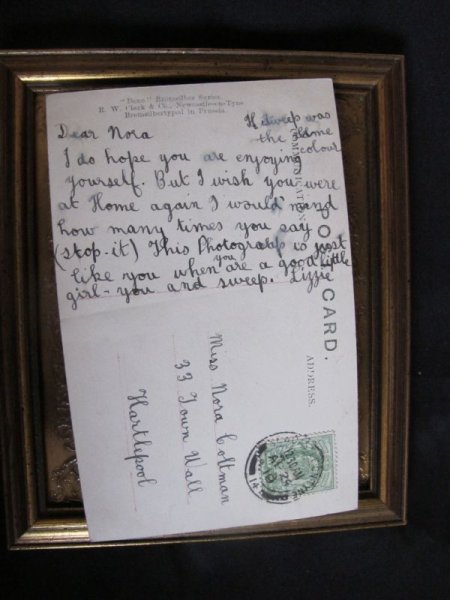 "Dene" Bromsilber Series.
R. W. Clark & Co., Newcastle-on-Tyne
Bromsilbertyped in Prussia.
If sweep was
the same
colour
Dear Nora
I do hope you are enjoying
yourself. But I wish you were
at Home again I would mind
how many times you say
(stop.it) This Photograph is just
like you when you are a good little
girl - you and sweep. Lizzie
COMMUNICATION.
POST CARD.
ADDRESS.
Miss Nora Coltman
33 Town Wall
Hartlepool